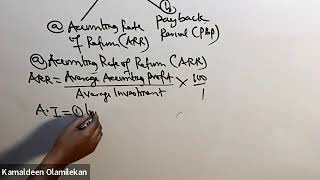 (b)
(a) Accounting Rate
of Return (ARR)
payback
Period (PBP)
(a) Accounting Rate of Return (ARR)
ARR = Average Accounting Profit × 100
Average Investment 1
A.I =
Kamaldeen Olamilekan